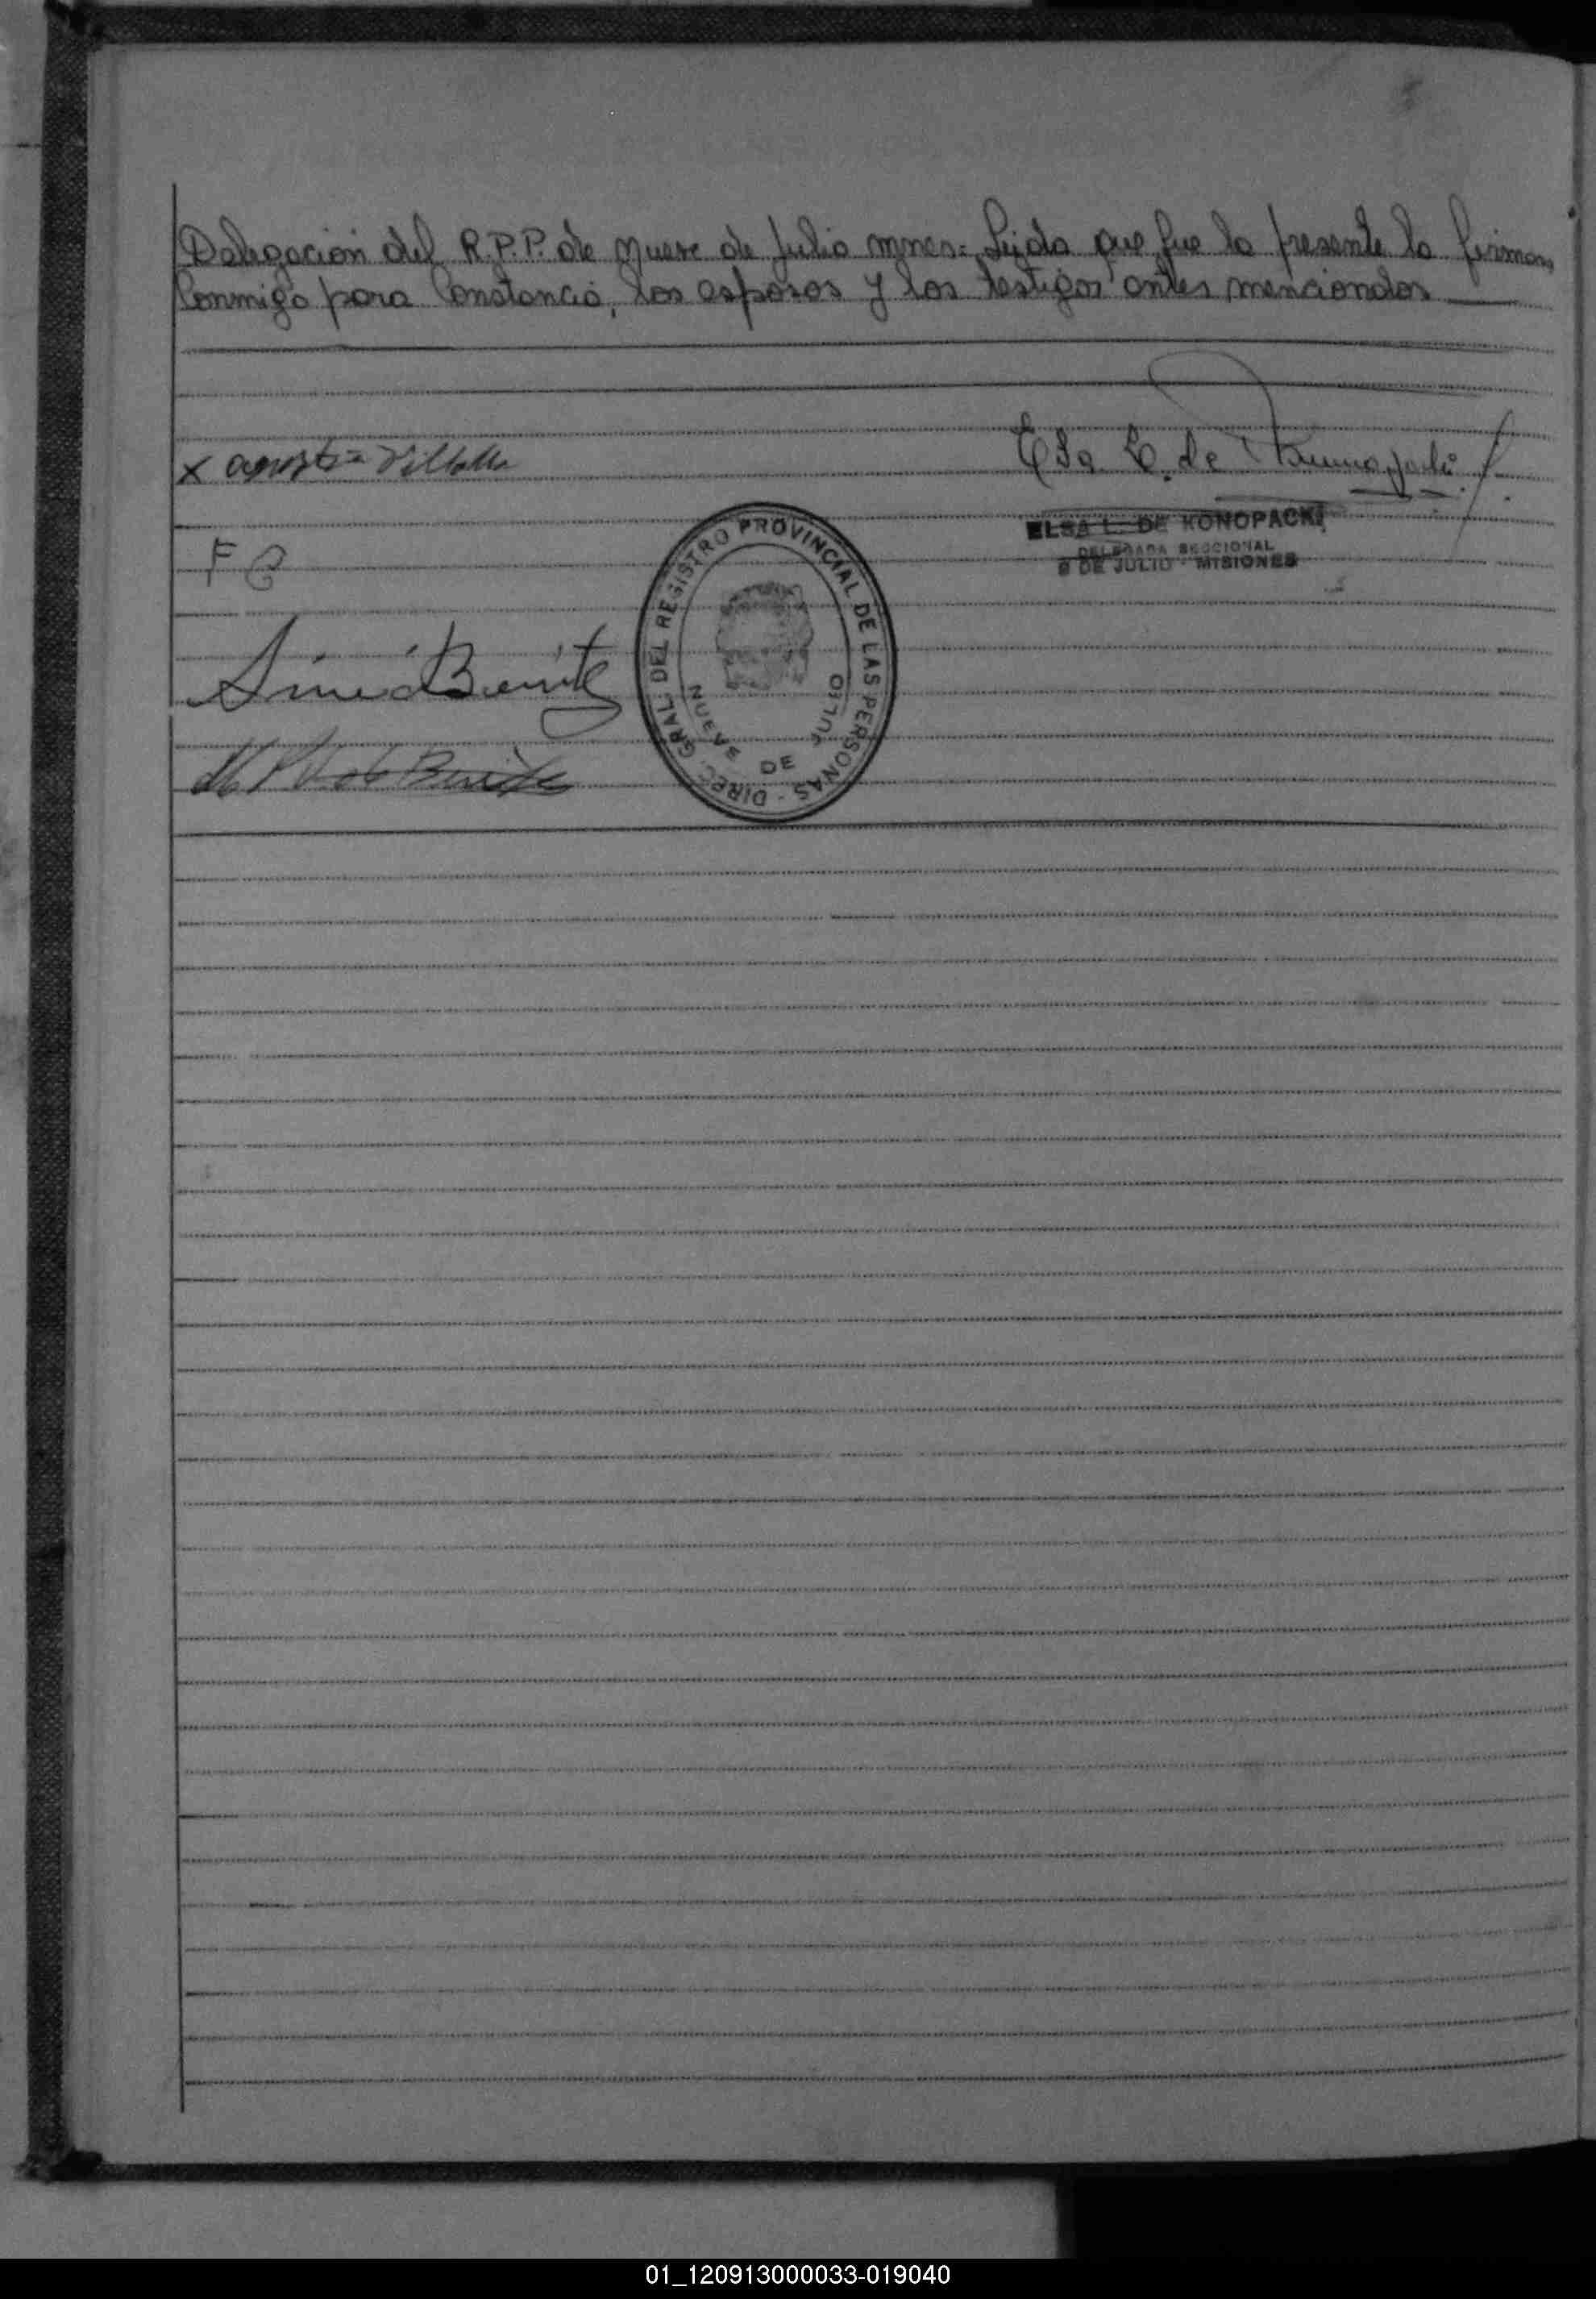 Delegación del R.P.P. de Nueve de Julio mnes.- Leida que fue la presente la firman
Conmigo para Constancia, los esposos y los testigos antes mencionados
x Villalba
Elsa L. de Konopacki
ELSA L. DE KONOPACKI
DELEGADA SECCIONAL
9 DE JULIO - MISIONES
F C
Benite
DIREC. GRAL DEL REGISTRO PROVINCIAL DE LAS PERSONAS -
NUEVE DE JULIO
01_120913000033-019040